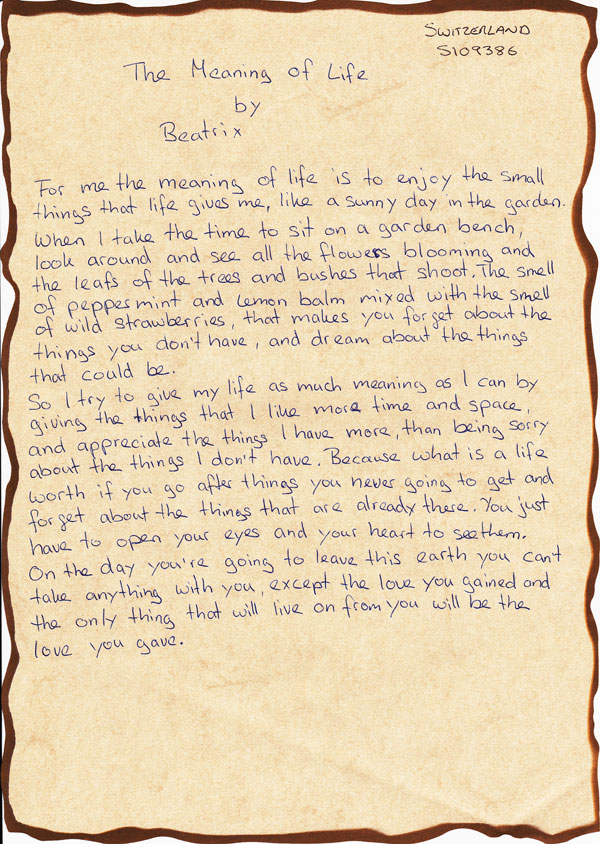 SWITZERLAND
S109386
The Meaning of Life
by
Beatrix
For me the meaning of life is to enjoy the small
things that life gives me, like a sunny day in the garden.
When I take the time to sit on a garden bench,
look around and see all the flowers blooming and
the leafs of the trees and bushes that shoot. The smell
of peppermint and lemon balm mixed with the smell
of wild strawberries, that makes you forget about the
things you don't have, and dream about the things
that could be.
So I try to give my life as much meaning as I can by
giving the things that I like more time and space,
and appreciate the things I have more, than being sorry
about the things I don't have. Because what is a life
worth if you go after things you never going to get and
forget about the things that are already there. You just
have to open your eyes and your heart to see them.
On the day you're going to leave this earth you can't
take anything with you, except the love you gained and
the only thing that will live on from you will be the
love you gave.